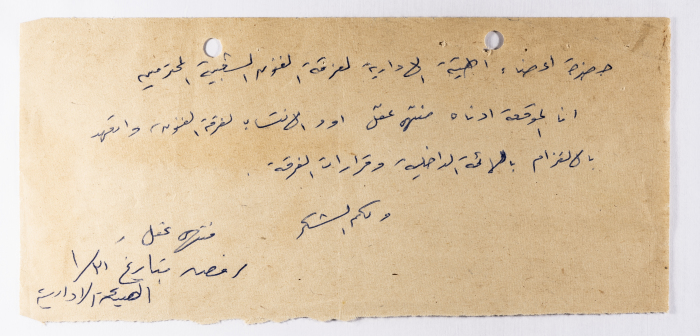 حضرة اعضاء الهيئة الادارية لفرقة الفنون الشعبية المحترمين
انا الموقعة ادناه منتهى عقل اود الانتساب لفرقة الفنون واتعهد
بالالتزام باللائحة الداخلية وقرارات الفرقة.
ولكم الشكر
منتهى عقل
رفض بتاريخ ٣١/١
الهيئة الادارية